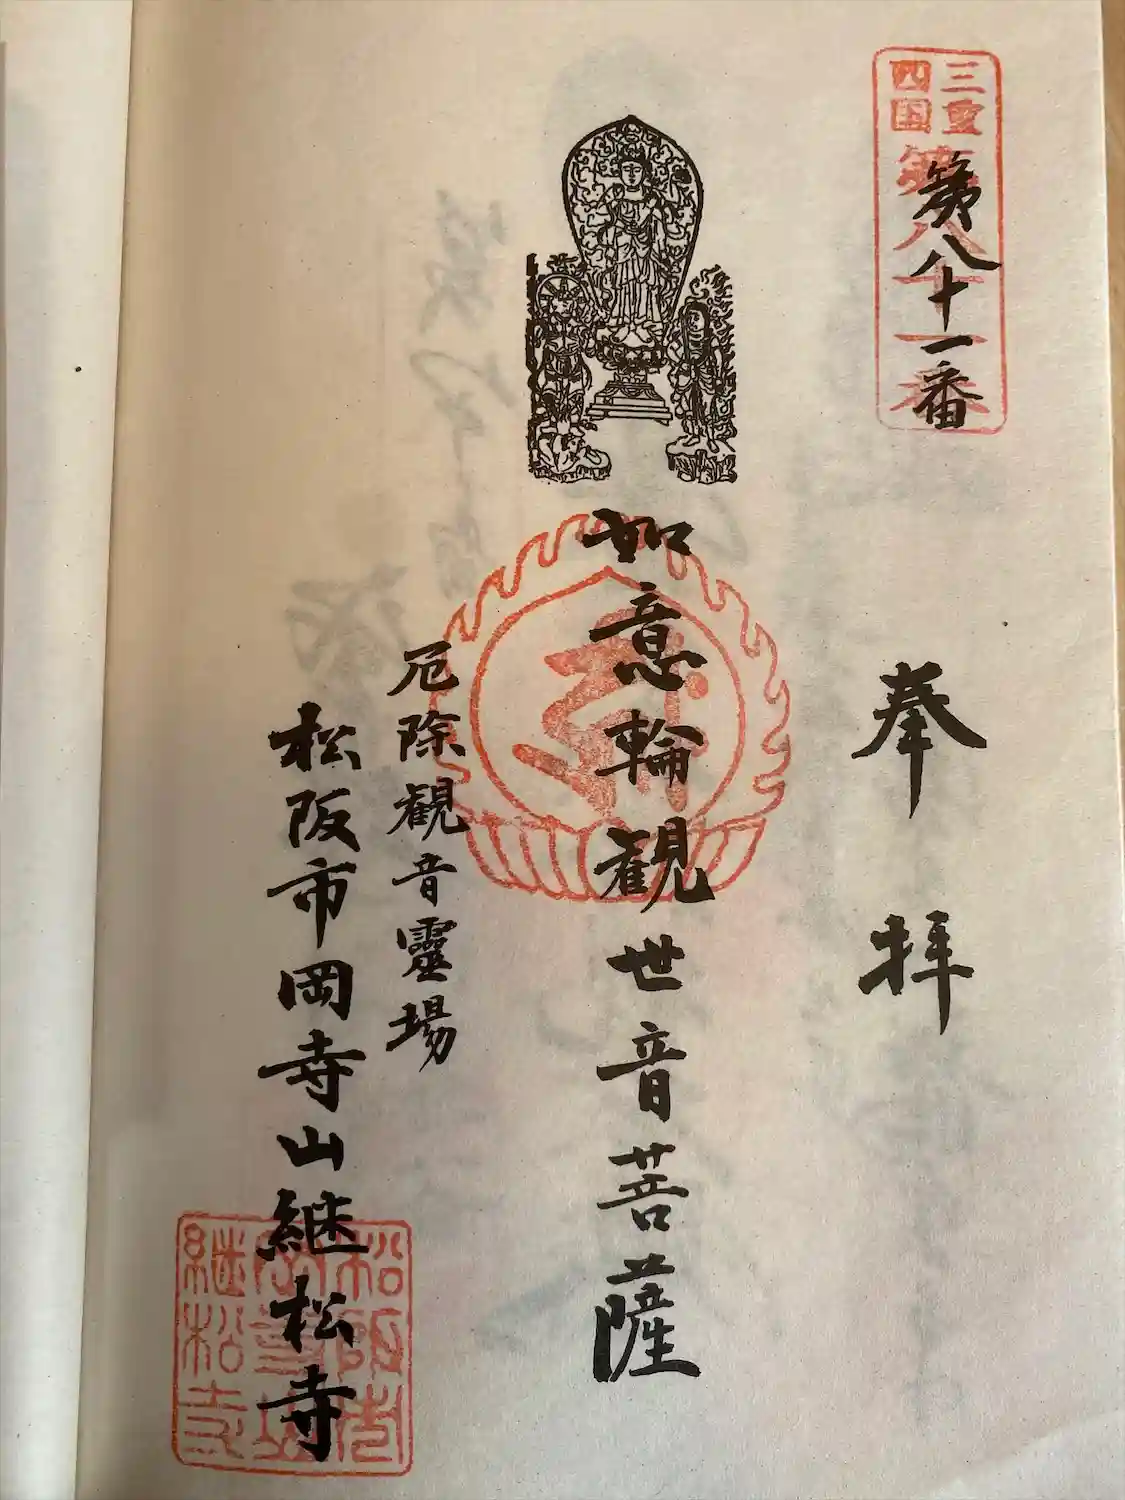 三重
四国
第八十一番
第八十一番
奉拝
如意輪観世音菩薩
厄除観音靈場
松阪市岡寺山継松寺
松阪市
岡寺山
継松寺